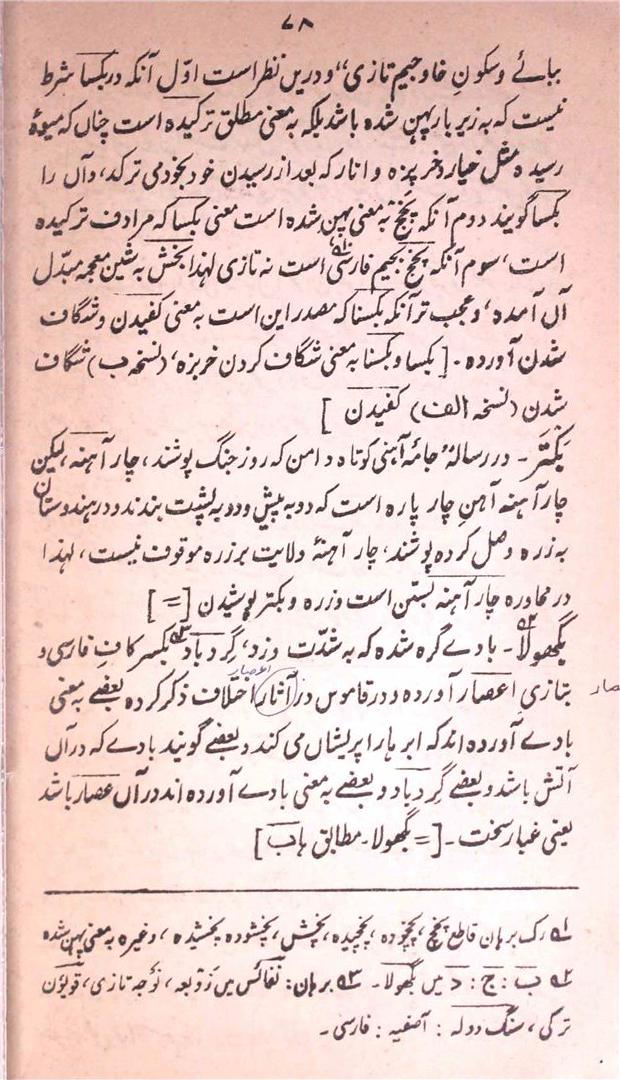 ۷۸
ببائے و سکونِ خا و جیم تازی“ و دریں نظر است اوّل آنکہ در بکسا شرط
نیست کہ بہ زیر بار پہن شدہ باشد بلکہ بہ معنی مطلق ترکیدہ است چناں کہ میوۂ
رسیدہ مثل خیار و خرپزہ و انار کہ بعد از رسیدن خود بخود می ترکد، و آں را
بکسا گویند دوم آنکہ پخج بہ معنی پہن شدہ است معنی بکسا کہ مرادف ترکیدہ
است، سوم آنکہ پخج بجیم فارسی۵۱ است نہ تازی لہٰذا بخش بہ شین معجمہ مبدّل
آں آمدہ، و عجب تر آنکہ بکسنا کہ مصدر این است بہ معنی کفیدن و شگاف
شدن آوردہ۔ [بکسا و بکسنا بہ معنی شگاف کردن خربزہ، (نسخہ ب) شگاف
شدن (نسخہ الف) کفیدن ]
بَکتَر۔ در رسالہ ’جامۂ آہنی کوتاہ دامن کہ روز جنگ پوشند، چار آہنہ، لیکن
چار آہنہ آہنِ چار پارہ است کہ دو بہ پیش و دو بہ پشت بندند و در ہندوستان
بہ زرہ وصل کردہ پوشند، چار آہنۂ ولایت بر زرہ موقوف نیست، لہٰذا
در محاورہ چار آہنہ بستن است و زرہ و بکتر پوشیدن [=]
بگھولا۵۲۔ بادے گرہ شدہ کہ بہ شدّت وزد، گِردباد۵۳ بکسر کافِ فارسی و
بتازی اِعصار آوردہ و در قاموس در آثار اختلاف ذکر کردہ بعضے بہ معنی
اعصار
بادے آوردہ اند کہ ابر ہا را پریشاں می کند و بعضے گویند بادے کہ در آں
آتش باشد و بعضے گِردباد و بعضے بہ معنی بادے آوردہ اند در آں عصار باشد
یعنی غبار سخت۔ [= بگھولا۔ مطابق ہاب]
۵۱ رک برہان قاطع پخج، پخجودہ، پخجیدہ، پخش، پخشودہ پخشیدہ، وغیرہ بہ معنی پہن شدہ
۵۲ ب : ج : د میں بگھولا۔ ۵۳ برہان : نفائس میں زَوبعہ، تازی، قویون
ترکی، سنگ دولہ : آصفیہ : فارسی۔